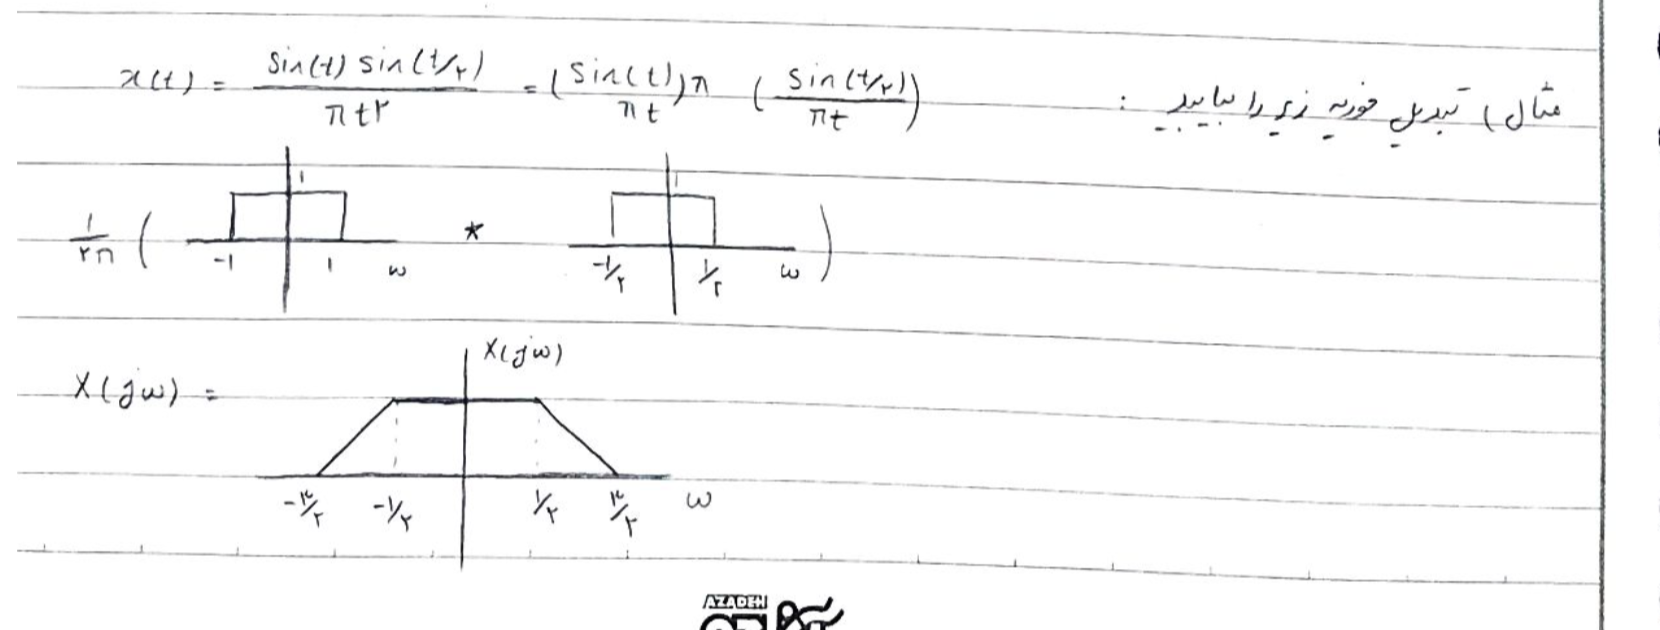 مثال) تبدیل فوریه زیر را بیابید :
x(t) = sin(t) sin(t/۲) / πt۲ = (sin(t) / πt) π (sin(t/۲) / πt)
۱ ۱
۱/۲π ( * )
-۱ ۱ ω -۱/۲ ۱/۲ ω
X(jω)
X(jω) =
-۳/۲ -۱/۲ ۱/۲ ۳/۲ ω
AZADEH